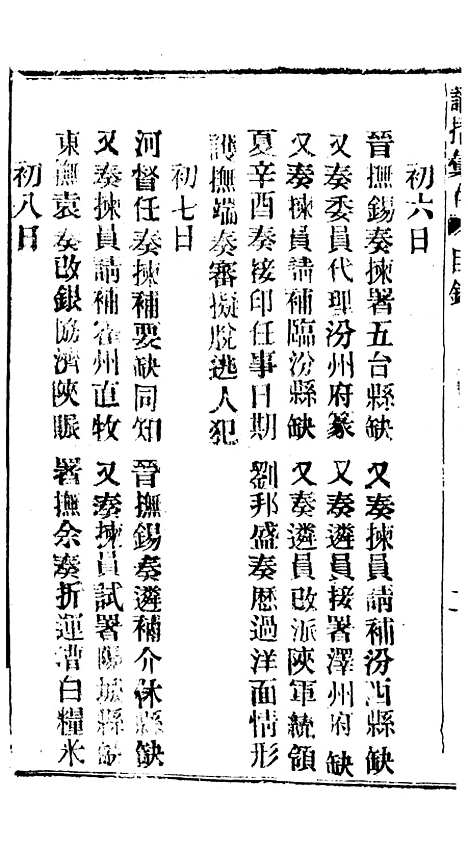 諭摺彙存 目錄
初六日
晉撫錫奏揀署五台縣缺 又奏揀員請補汾西縣缺
又奏委員代理汾州府篆 又奏遴員接署澤州府缺
又奏揀員請補臨汾縣缺 又奏遴員改派陝軍統領
夏辛酉奏接印任事日期 劉邦盛奏歷過洋面情形
護撫端奏審擬脫逃人犯
初七日
河督任奏揀補要缺同知 晉撫錫奏遴補介休縣缺
又奏揀員請補霍州直牧 又奏揀員試署陽城縣缺
東撫袁奏改銀協濟陝賑 署撫余奏折運漕白糧米
初八日